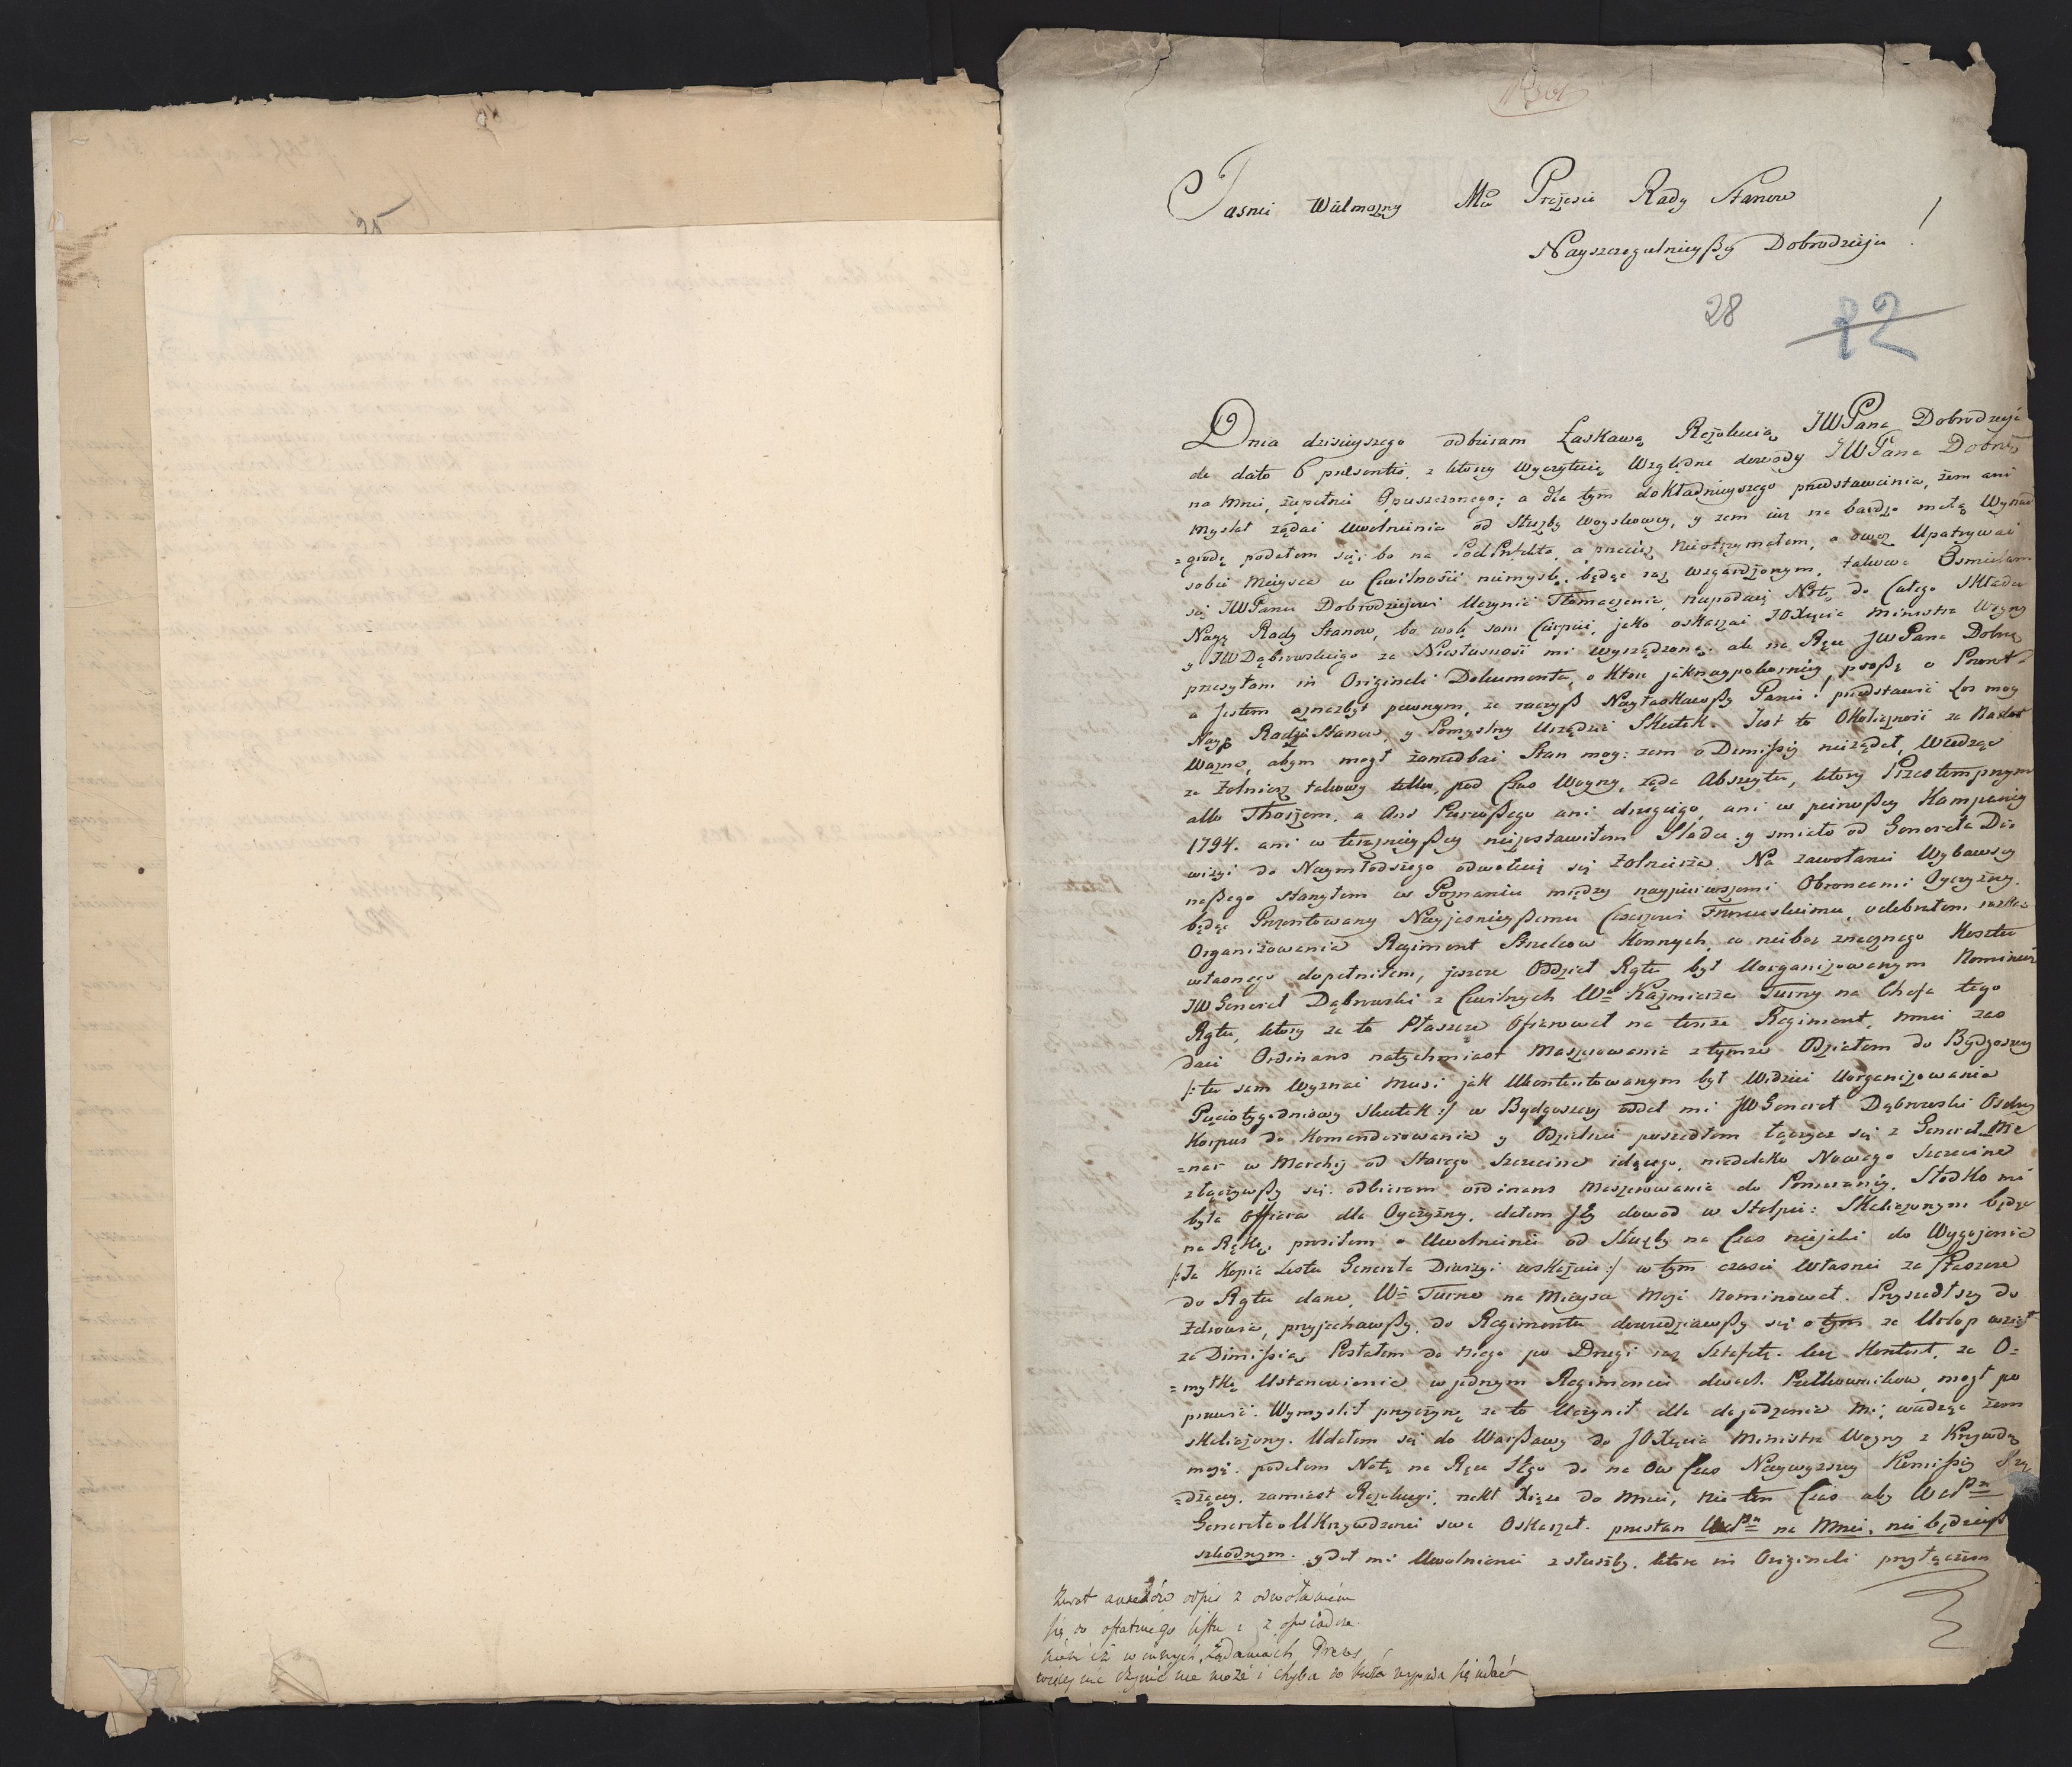 25
Jasnie Wielmozny Mci Prezesie Rady Stanow
Nayszczegulnieyßy Dobrodzieju !
28 82
Dnia dzisieyszego odbieram Łaskawą Rezolucią JWPana Dobrodzieja
de dato 6 praesentis, z ktorey wyczytuię Względne dowody JWPana Dobro
na mnie, zupełnie Opuszczonego; a dla tym dokładnieyszego przedstawienia, żem ani
myslał żądać uwolnienia od Służby woyskowey, y żem iuż na bardzo małą Wynad
=grodę podałem się, bo na PodPrefekta, a przecięż nieotrzymałem, a owez Upatrywać
sobie Mieysca w Cwilności niemyslę, będąc raz wzgardzonym, takowe Osmielam
się JWPanu Dobrodziejowi Uczynić Tłomaczenie, niepodaię Notę do Całego Składu
Nayg Rady Stanow, bo wolę sam Cierpieć, jako oskarzać JOXięcia Ministra Woyny
y JWDąbrowskiego za Niesłusność mi wyrządzoną, ale na Ręce JWPana Dobrg
przesyłam in Originali Dokumenta, o ktore jaknaypokorniey proßę o Powrot
a jestem aznazbyt pewnym, że raczyß Nayłaskawßy Panie! przedstawić Los moy
Nayg Radzie Stanow, y Pomyslny Urządzić Skutek. Jest to Okoliczność za nadto
Wazna, abym mogł zaniedbać Stan moy: żem o Dimißią nieżądał, Wiedząc
że Zolnierz takowy tylko, pod Czas Woyny, żąda Abszeytu, ktory Przestempnym
albo Thorzem, a Ani Pierwßego ani drugiego, ani w peirwßey Kampanij
1794. ani w terazniejßey niezostawiłem Sladu, y smiało od Generała Di=
wizyi do Naymłodszego odwołuię się Zolnierza. Na zawołanie Wybawcy
naßego stanąłem w Poznaniu między naypierwszemi Obroncami Oyczyzny.
będąc Prezentowany Nayjasnieyßemu Cesarzowi Francuskiemu, odebrałem rozkaz
Organizowania Regiment Strzelcow Konnych, co niebez znacznego Kosztu
własnego dopełniłem, jeszcze Oddział Rgtu był Uorganizowanym Nominuie
JWGenerał Dąbrowski z Cwilnych Wo Kazmierza Turny na Chefa tego
Rgtu, ktory za to Płaszcze Ofiarował na tenże Regiment, mnie zas
daie Ordinans natychmiast Maszerowania z tymże Oddziałem do Bydgoszczy
/: tu sam wyznać musi jak Ukontentowanym był Widzieć Uorganizowania
Pięciotygodniowy Skutek :/ w Bydgoszczy oddał mi JWGenerał Dąbrowski Osobny
Korpus do Komenderowania y Oddzielnie poszedłem łącząc się z Generał Me
=nar w Marchij od Starego Szczecina idącego, niedaleko Nowego Szczecina
złączywßy się odbieram ordinans Maszerowania do Pomeranij. Słodko mi
była offiara dla Oyczyzny, dałem Jey dowod w Stolpie: Skaliczonym będąc
na Rękę, prosiłem o Uwolnienie od Służby na Czas niejaki do Wygojenia
/: Ja Kopia Listu Generała Diwizyi wskazuie :/ w tym czasie Własnie za Płaszcze
do Rgtu dane, Wo Turno na Mieysce Moje Nominował. Przyszedłszy do
Zdrowia, przyjechawßy do Regimentu dowiedziawßy się o tym że Urlop wziął
za Dimißią, Posłałem do niego po Drugi raz Sztafetę. lecz Kontent, że O=
=myłkę Ustanowienia w jednym Regimencie dwuch Pułkownikow, mogł po
prawić. Wymyslił przyczynę że to Uczynił dla dogodzenia Mi, wiedząc żem
skaliczony. Udałem się do Warßawy do JOXięcia Ministra Woyny z Krzywdą
moją. podałem Notę na Ręce Jego do na Ow Czas Naywyzszey Komißiy Rzą
=dzącey. zamiast Rezolucyi, rzekł Xiąze do Mnie, nie ten Czas aby WcPn
Generała o Ukrzywdzenie swe Oskarzał. przestan WcPn na Mnie, nie będzieß
szkodnym. ydał mi Uwolnienie z służby, ktore in Originali przyłączam
Zwrot annexów odpis z odwołaniem
się do ostatniego listu i z oświadcze
niem iż w innych żądaniach Prezes
więcey nic czynić nie może i chyba do Króla wypada się udać